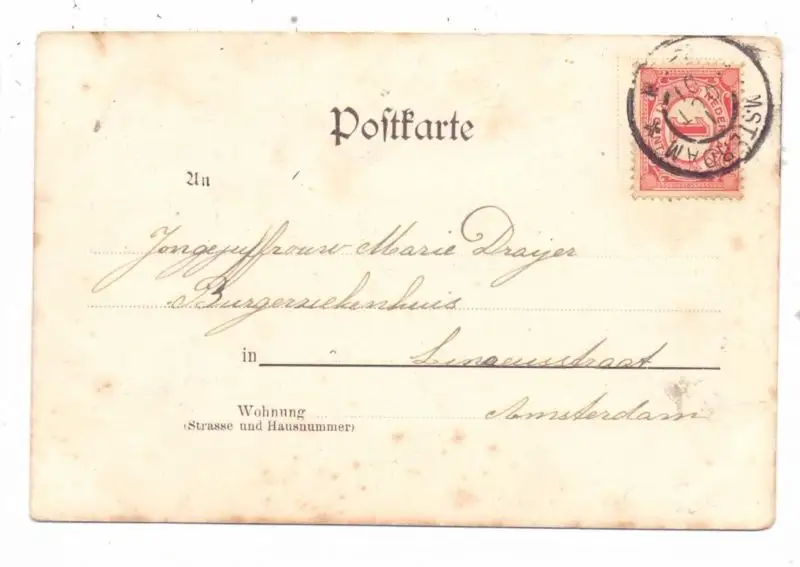 Postkarte
AMSTERDAM
NEDERLAND
1
CENT
An
Jongejuffrouw Marie Draijer
Burgerziekenhuis
in Linnaeusstraat
Wohnung Amsterdam
(Strasse und Hausnummer)